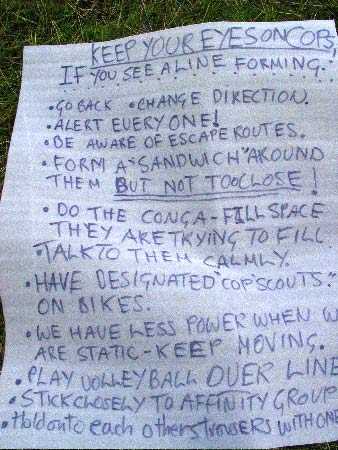 KEEP YOUR EYES ON COPS,
IF YOU SEE A LINE FORMING:
• GO BACK • CHANGE DIRECTION.
• ALERT EVERYONE!
• BE AWARE OF ESCAPE ROUTES.
• FORM A "SANDWICH" AROUND
THEM BUT NOT TOO CLOSE!
• DO THE CONGA - FILL SPACE
THEY ARE TRYING TO FILL
• TALK TO THEM CALMLY.
• HAVE DESIGNATED "COP SCOUTS"
ON BIKES.
• WE HAVE LESS POWER WHEN W
ARE STATIC - KEEP MOVING.
• PLAY VOLLEYBALL OVER LINE
• STICK CLOSELY TO AFFINITY GROUP
• Hold onto each others trousers with one